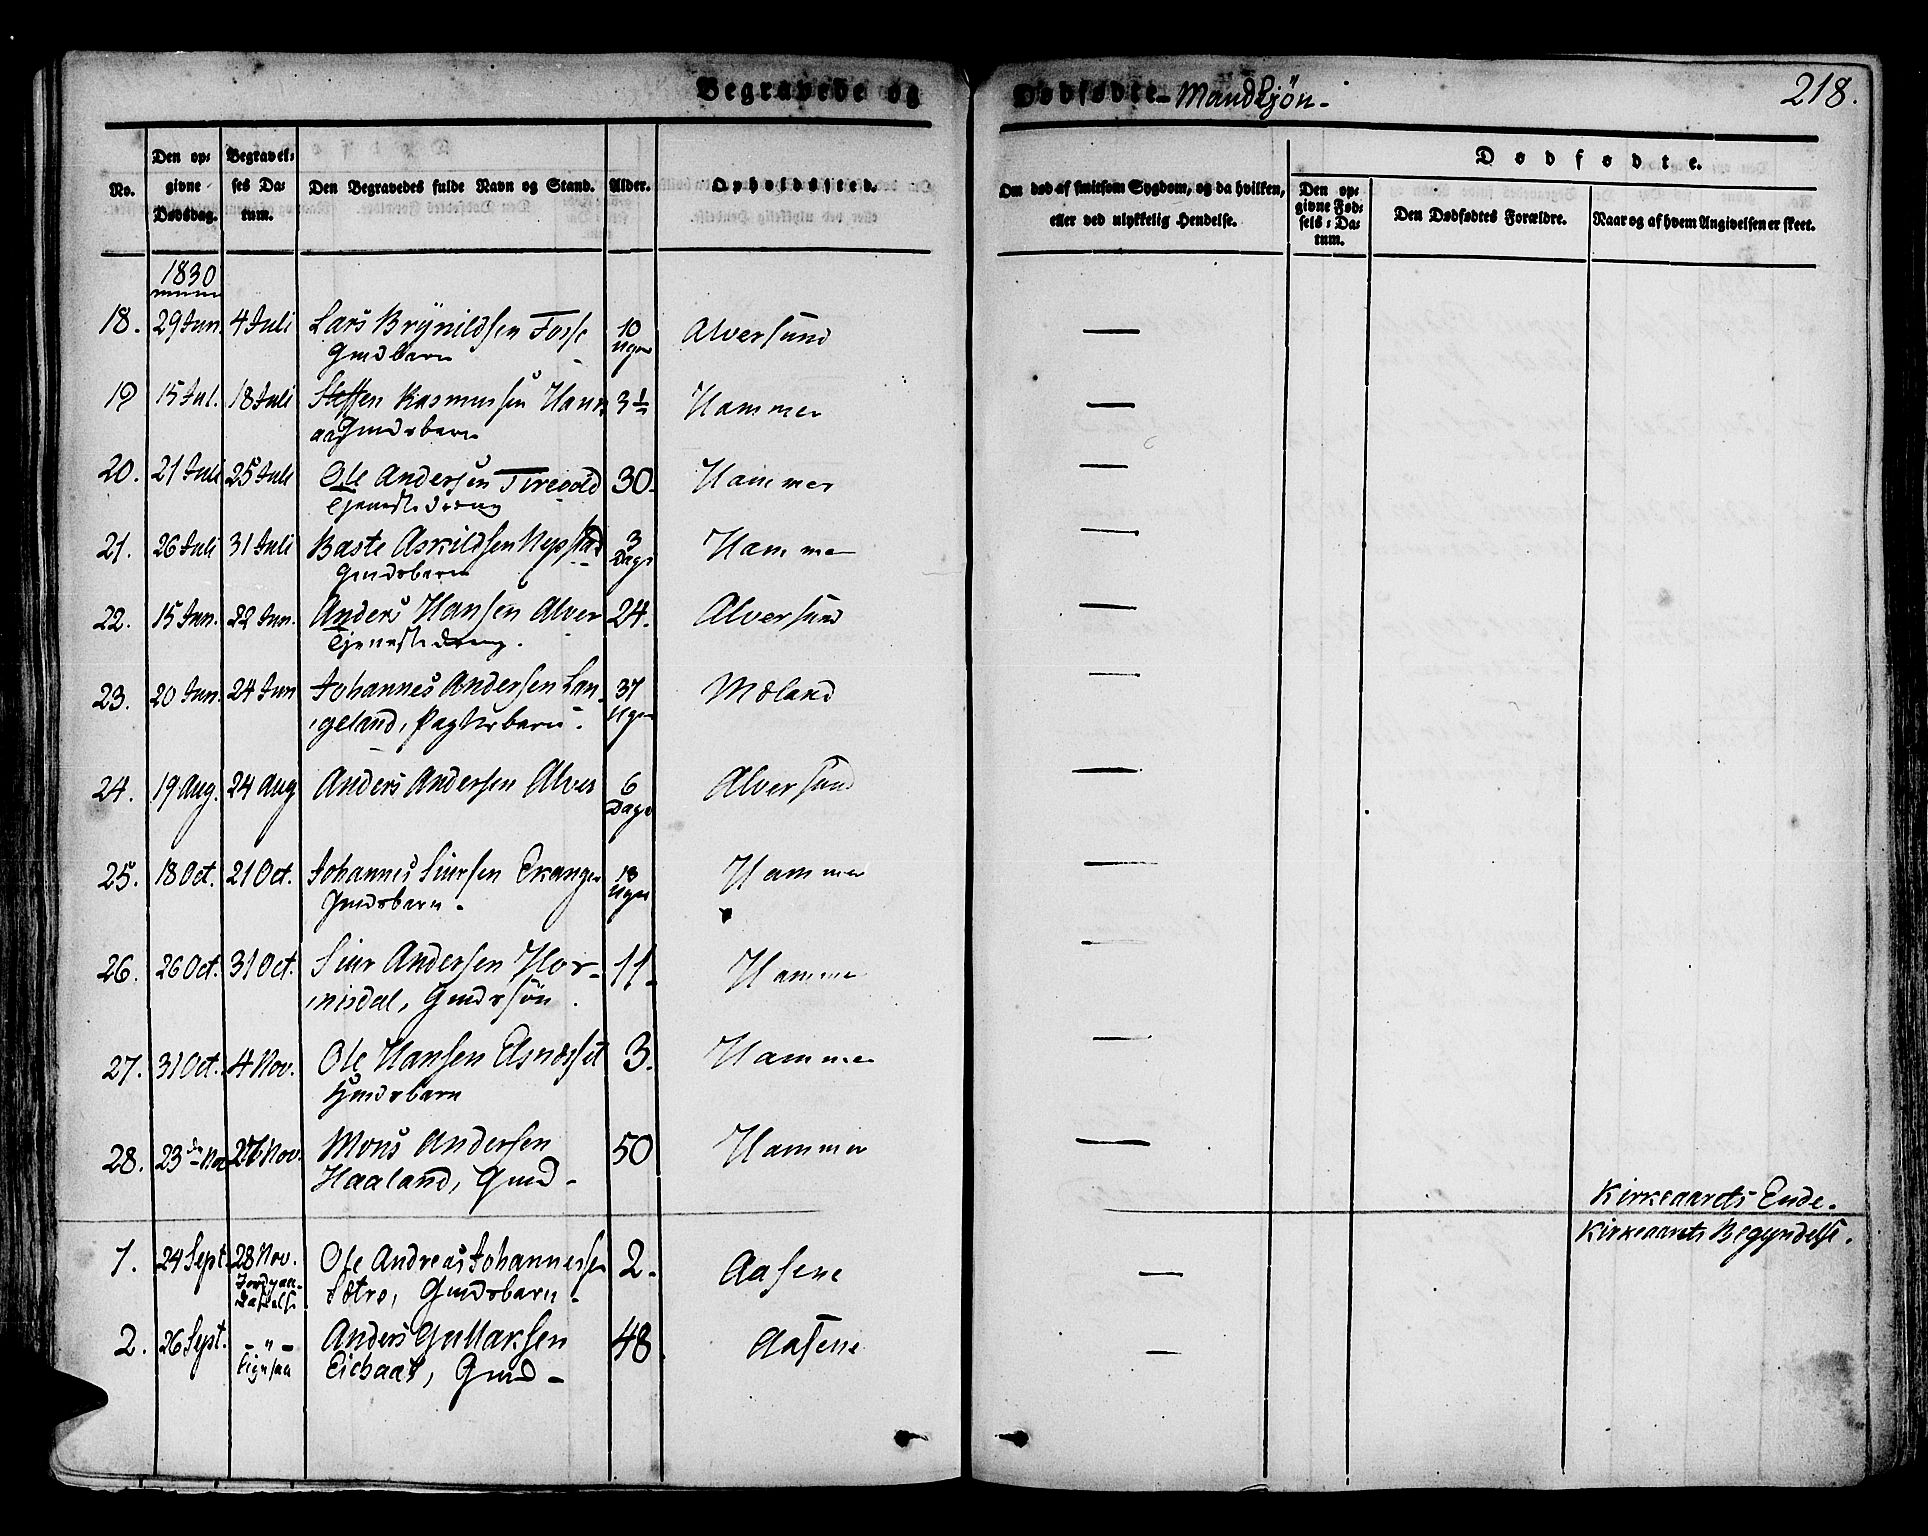 Begravede og Dødfødte - Mandkjön - 218.
No. Den opgivne Dødsdag. Begravelses Datum. Den Begravedes fulde Navn og Stand. Alder. Opholdssted. Om død af smitsom Sygdom, og da hvilken, eller ved ulykkelig Hendelse. Dødfødte. Den opgivne Fødsels-Datum. Den Dødfødtes Forældre. Naar og af hvem Angivelsen er skeet.
1830
18. 29 Jun. 4 Juli Lars Brÿnildsen Fosse 10 Uger Alversund —
Gmdbarn
19 15 Jul. 18 Juli Steffen Rasmussen Haun 3 1/2 Hammer —
aas Gmdsbarn
20. 21 Juli 25 Juli Ole Andersen Tirevold 30. Hammer —
Tjenestedreng
21. 26 Juli 31 Juli Baste Askildsen Repstad 3 Dage Hammer —
Gmdsbarn
22. 15 Jun. 22 Jun. Anders Hansen Alver 24. Alversund —
Tjenestedreng.
23. 20 Jun. 24 Jun Johannes Andersen Lan- 37 Uger Mæland —
geland, Pagterbarn.
24. 19 Aug. 24 Aug Anders Andersen Alver 6 Dage Alversund —
25. 18 Oct. 21 Oct. Johannes Siursen Ekanger 13 Uger Hammer —
Gmdsbarn.
26. 26 Oct. 31 Oct. Siur Andersen Hor- 11. Hamme —
nisdal, Gmdssön.
27. 31 Oct. 4 Nov. Ole Hansen Elsnæsset 3. Hammer —
Gmdsbarn
28. 23de Nov 27 Nov. Mons Andersen 50 Hammer —
Haaland, Gmd -
Kirkeaarets Ende.
Kirkeaarets Begyndelse.
1. 24 Sept. 28 Nov. Ole Andreas Johannessen 2. Aasene —
Jordpaa- Sætre, Gmdsbarn -
kastelse
2. 26 Sept. - " - Anders Gullaksen 48. Aasene —
ligesaa Eichaas, Gmd -